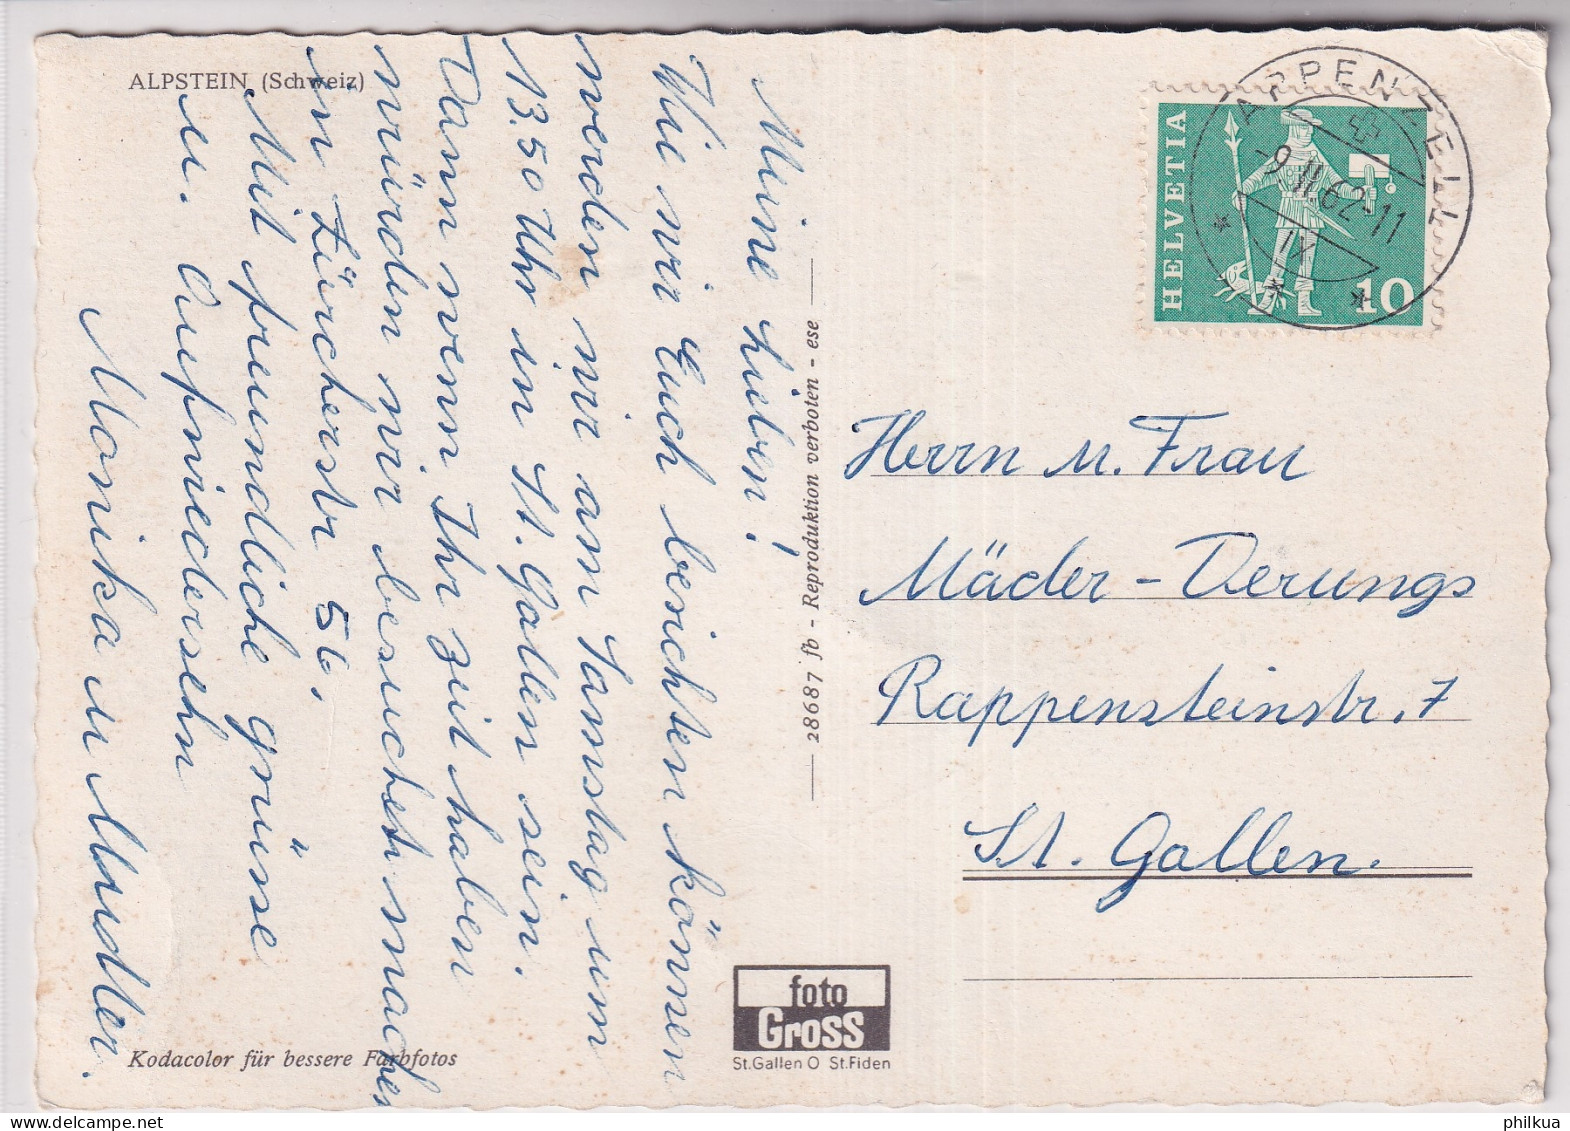 ALPSTEIN (Schweiz)
Meine Lieben!
Wie wir Euch berichten können
werden wir am Samstag um
13.50 Uhr in St. Gallen sein.
Dann wenn Ihr Zeit haben
würden wir besuchet machen
in Zürcherstr 56,
Mit freundliche grüsse
u. Aufwiedersehn
Monika u
Kodacolor für bessere Farbfotos
28687 fb - Reproduktion verboten - ese
foto
Gross
St.Gallen O St.Fiden
APPENZELL
-9. II. 62-11
IV
HELVETIA
10
Herrn u. Frau
Mäder - Derungs
Rappensteinstr. 7
St. Gallen.
philkua